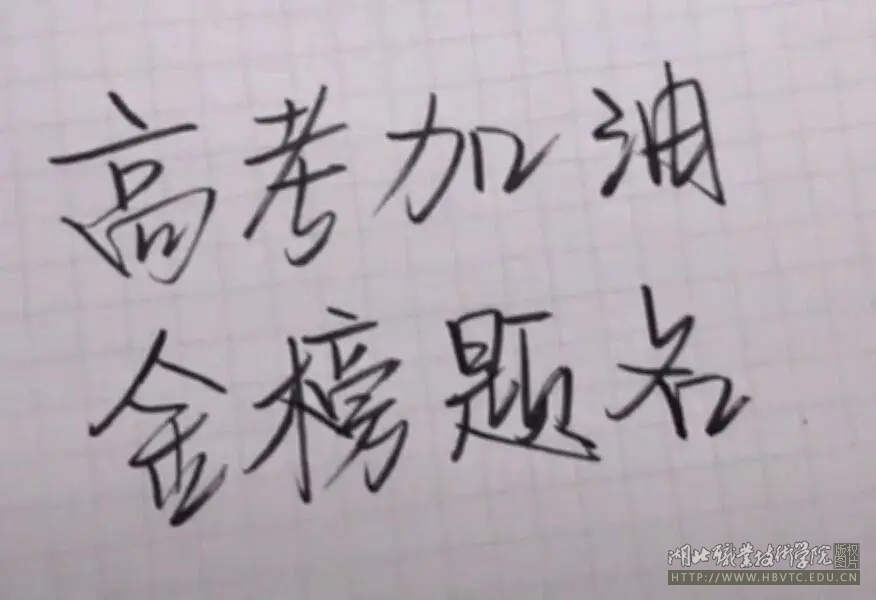 高考加油
金榜题名
湖北职业技术学院 版权图片
HTTP://WWW.HBVTC.EDU.CN